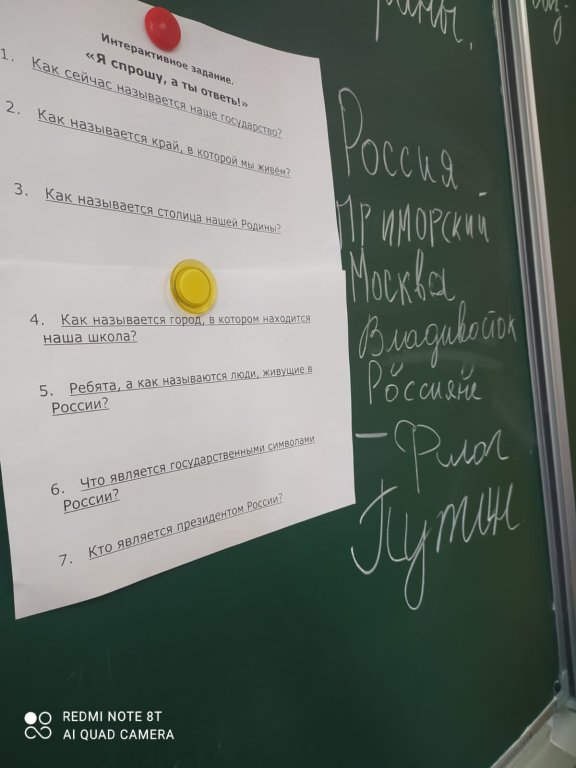 Интерактивное задание.
«Я спрошу, а ты ответь!»
1. Как сейчас называется наше государство?
2. Как называется край, в которой мы живём?
3. Как называется столица нашей Родины?
4. Как называется город, в котором находится
наша школа?
5. Ребята, а как называются люди, живущие в
России?
6. Что является государственными символами
России?
7. Кто является президентом России?
Россия
Приморский
Москва
Владивосток
Россияне
– Флаг
Путин
REDMI NOTE 8T
AI QUAD CAMERA